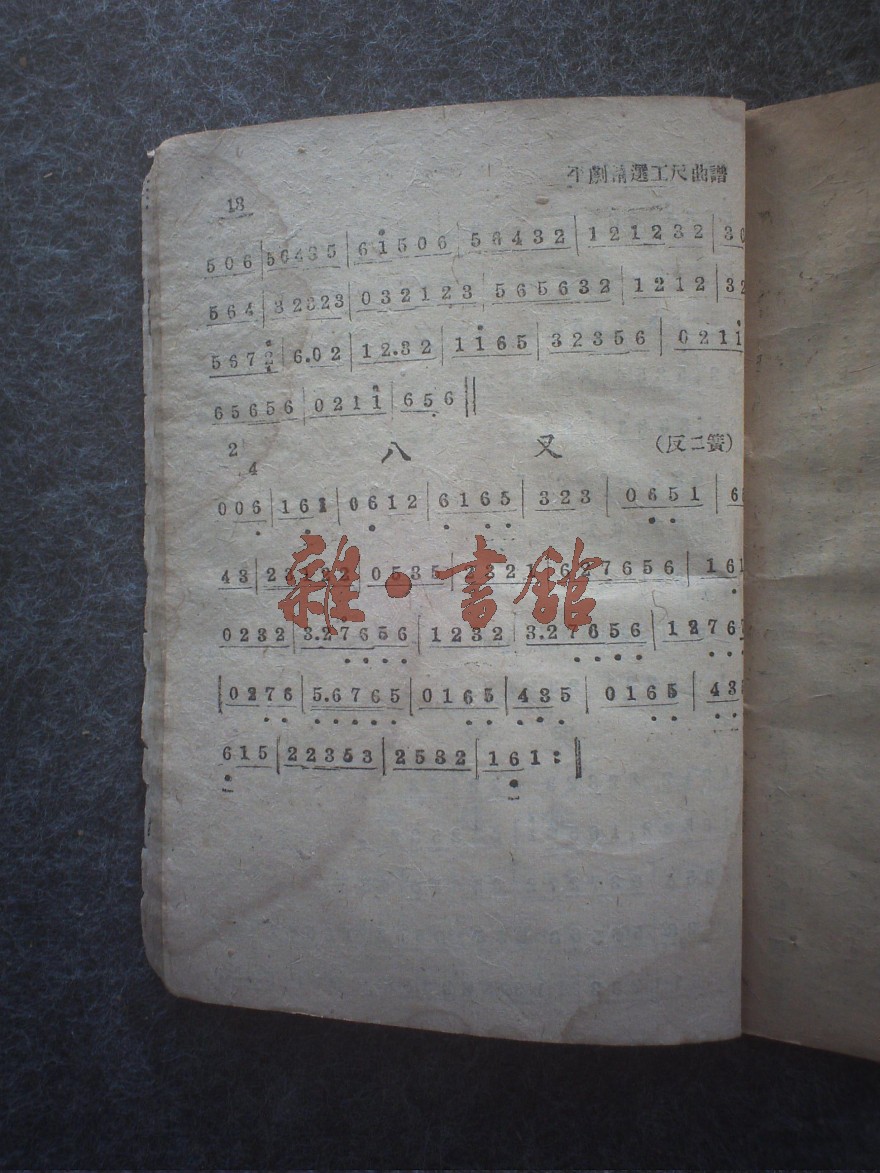 平劇精選工尺曲譜
18
506|56435|6i506|56432|121232|30
564|32323|032123|565632|1212|32
5672|6.02|12.32|1i65|32356|021i
65656|021i|656‖
2
4
八 叉 (反二簧)
006|161|0612|6165|323|0651|6
43|23122|0535|2321|627656|161
0232|3.27656|1232|3.27656|1276
|0276|5.6765|0165|435|0165|435
615|22353|2532|161:‖
雜·書館